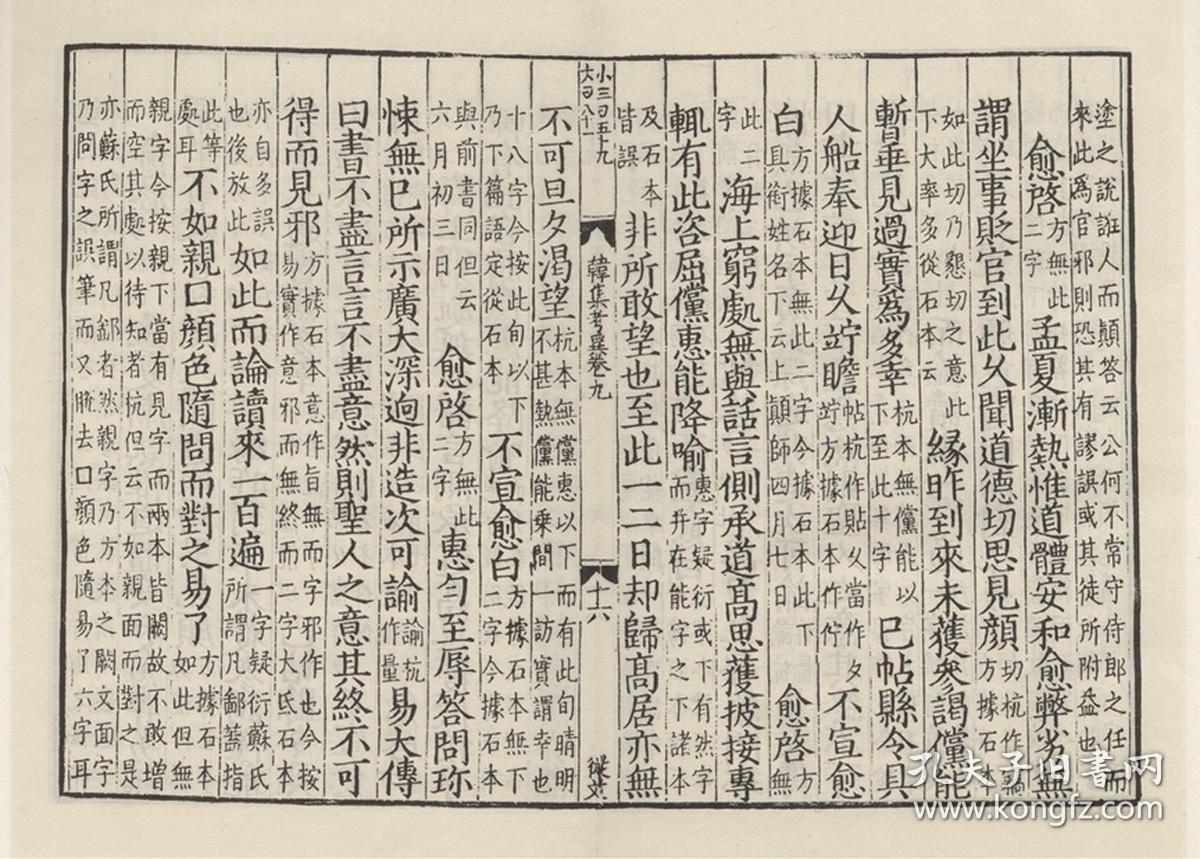 塗之說誑人而顛答云公何不常守侍郎之任而
來此爲官邪則恐其有謬誤或其徒所附益也
愈啓方無此二字孟夏漸熱惟道體安和愈弊劣無
謂坐事貶官到此久聞道德切思見顔切杭作竊方據石本
如此切乃懇切之意此下大率多從石本云緣昨到來未獲參謁儻能
暫垂見過實爲多幸杭本無儻能以下至此十字已帖縣令具
人船奉迎日久竚瞻帖杭作貼久當作夕竚方據石本作佇不宣愈
白方據石本無此二字今據石本此下具銜姓名下云上顛師四月七日愈啓方無
此二字海上窮處無與話言側承道高思獲披接專
輒有此咨屈儻惠能降喻惠字疑衍或下有然字而并在能字之下諸本
及石本皆誤非所敢望也至此一二日却歸高居亦無
小三曰五十九
大曰八十
韓集考異卷九
十六
不可旦夕渴望杭本無儻惠以下而有此旬晴明不甚熱儻能乗間一訪實謂幸也
十八字今按此旬以下乃下篇語定從石本不宣愈白方據石本無下二字今據石本
與前書同但云六月初三日愈啓方無此二字惠勻至辱答問珎
悚無已所示廣大深逈非造次可諭諭杭作量易大傳
曰書不盡言言不盡意然則聖人之意其終不可
得而見邪方據石本意作旨無而字邪作也今按易實作意邪而無終而二字大氐石本
亦自多誤也後放此如此而論讀來一百遍一字疑衍蘇氏所謂凡鄙蓄指
此等處耳不如親口顔色隨問而對之易了方據石本如此但無
親字今按親下當有見字而兩本皆闕故不敢增
而空其處以待知者杭但云不如親面而對之是
亦蘇氏所謂凡鄙者然親字乃方本之闕文面字
乃問字之誤筆而又脫去口顔色隨易了六字耳
孔夫子旧书网
www.kongfz.com